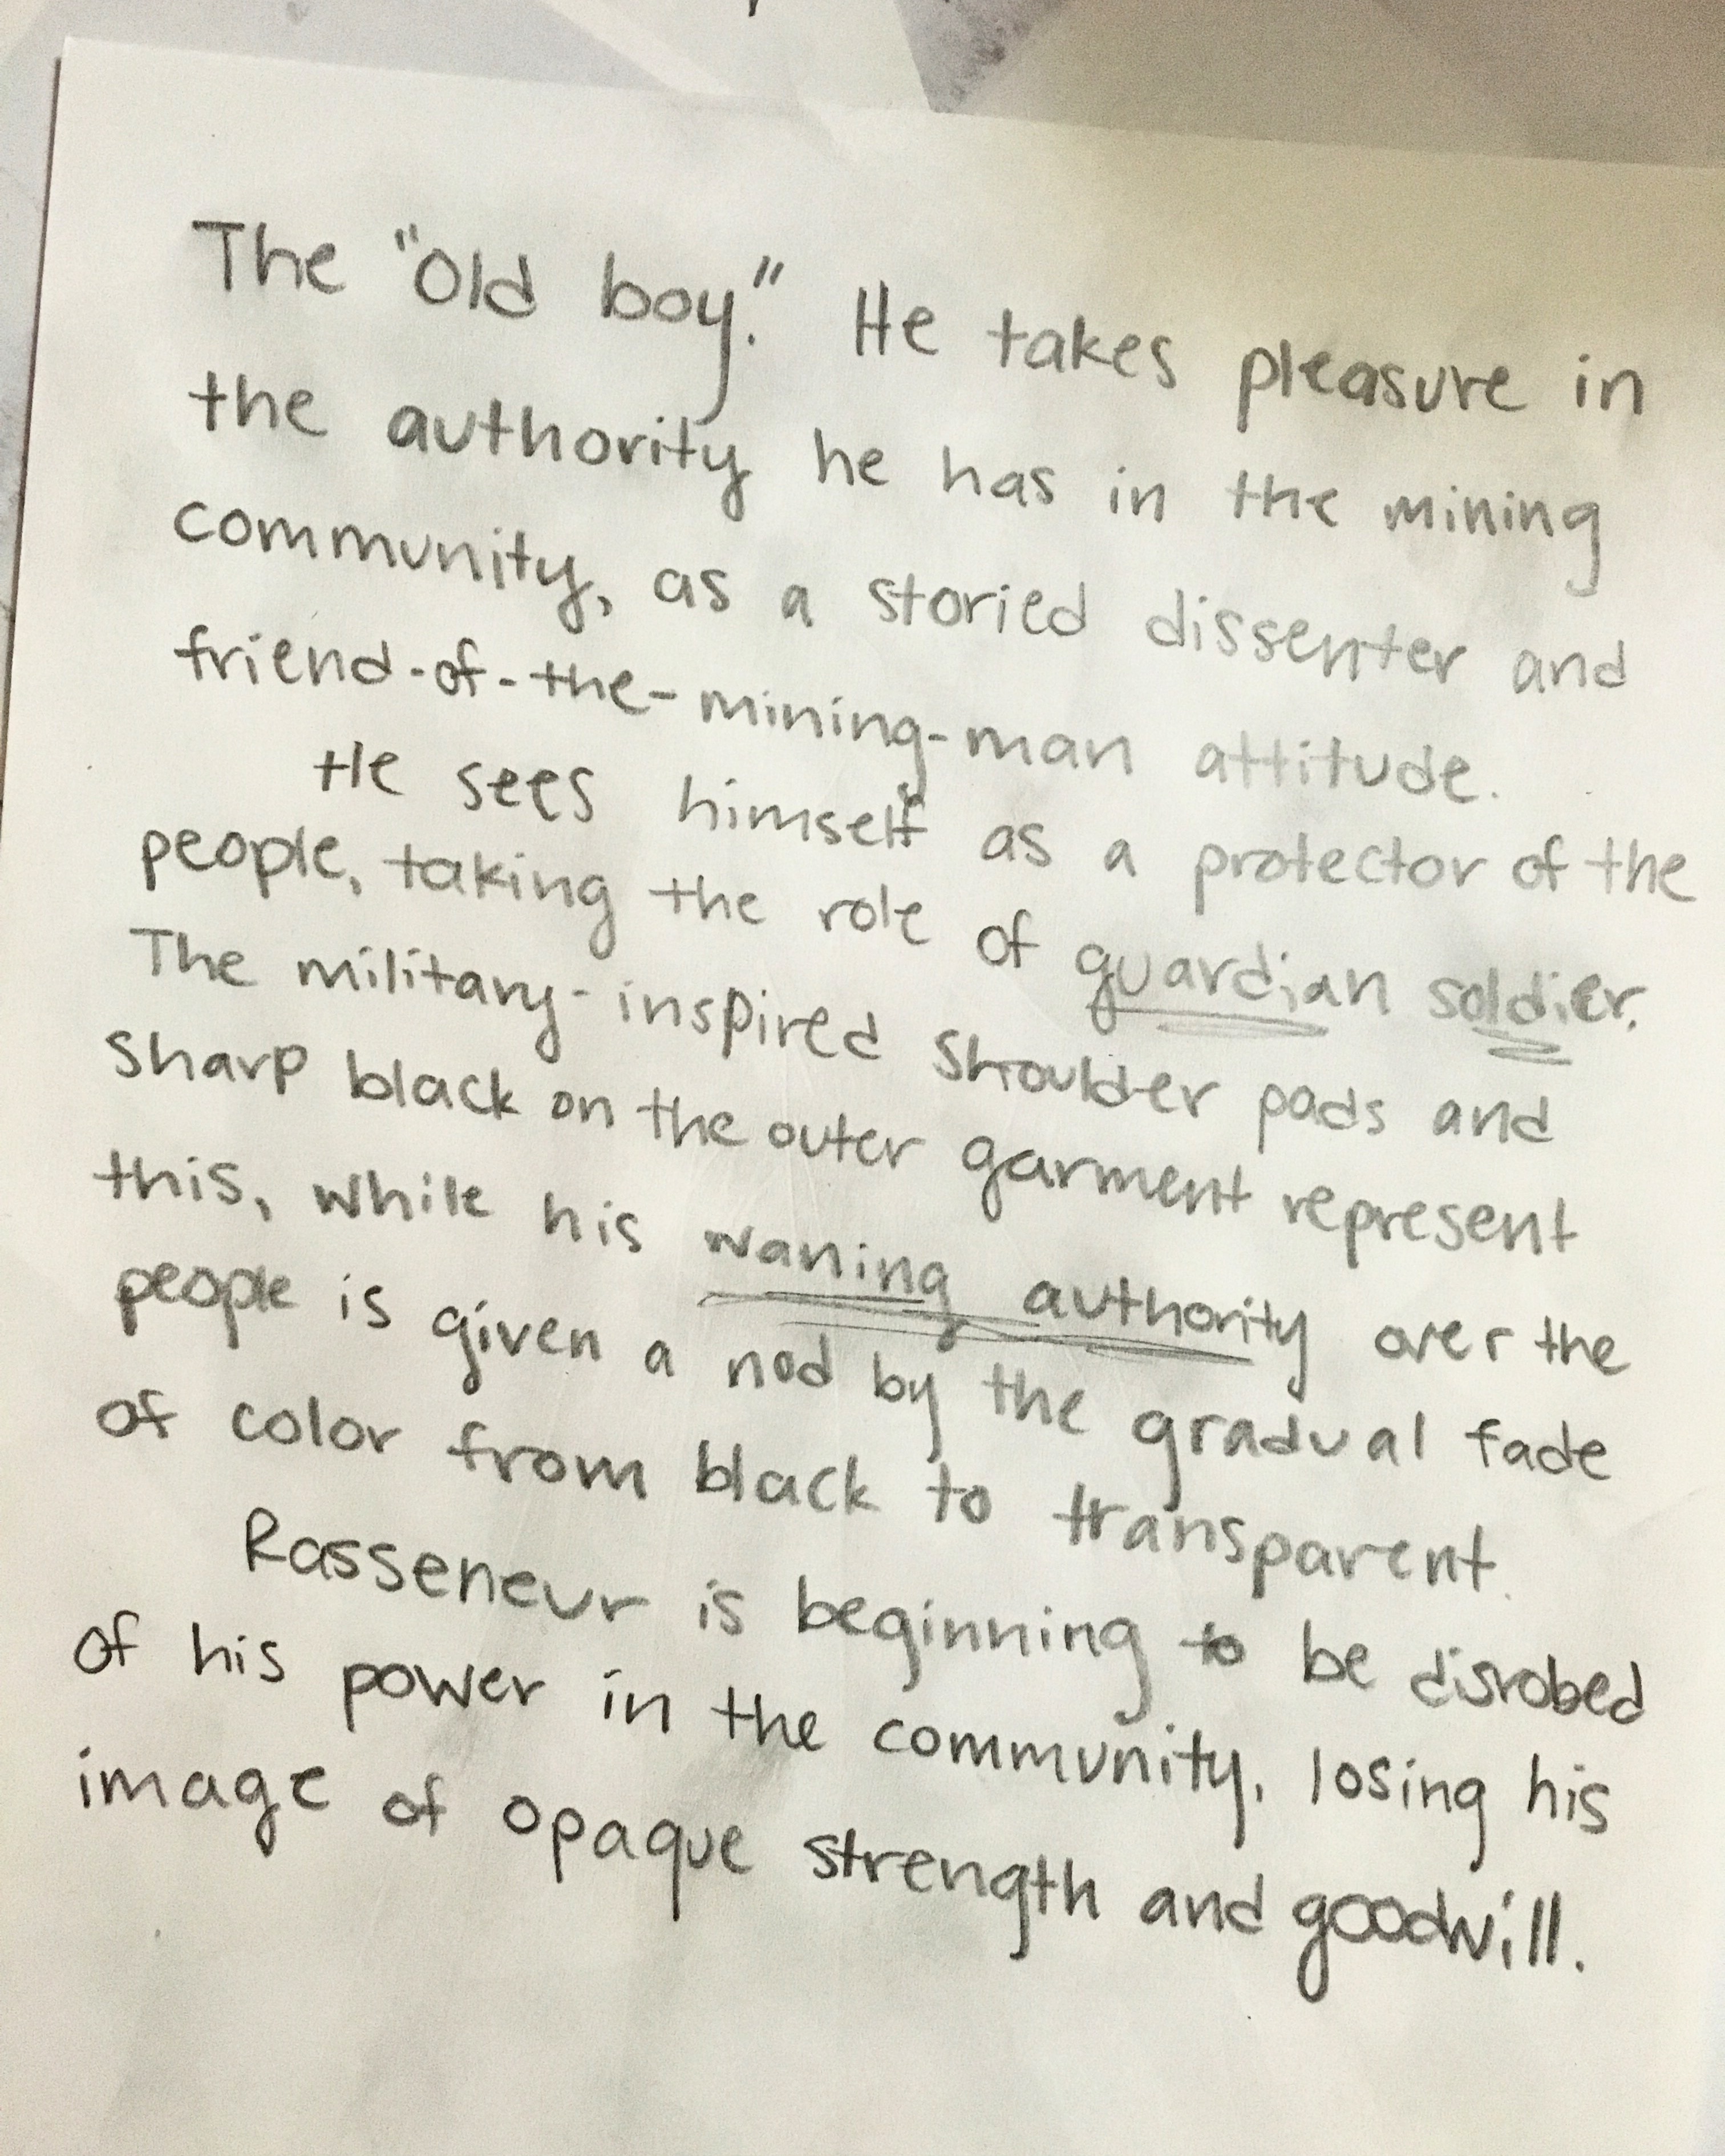 The "Old boy." He takes pleasure in
the authority he has in the mining
community, as a storied dissenter and
friend-of-the-mining-man attitude.
He sees himself as a protector of the
people, taking the role of guardian soldier.
The military-inspired shoulder pads and
sharp black on the outer garment represent
this, while his waning authority over the
people is given a nod by the gradual fade
of color from black to transparent.
Rasseneur is beginning to be disrobed
of his power in the community, losing his
image of opaque strength and goodwill.